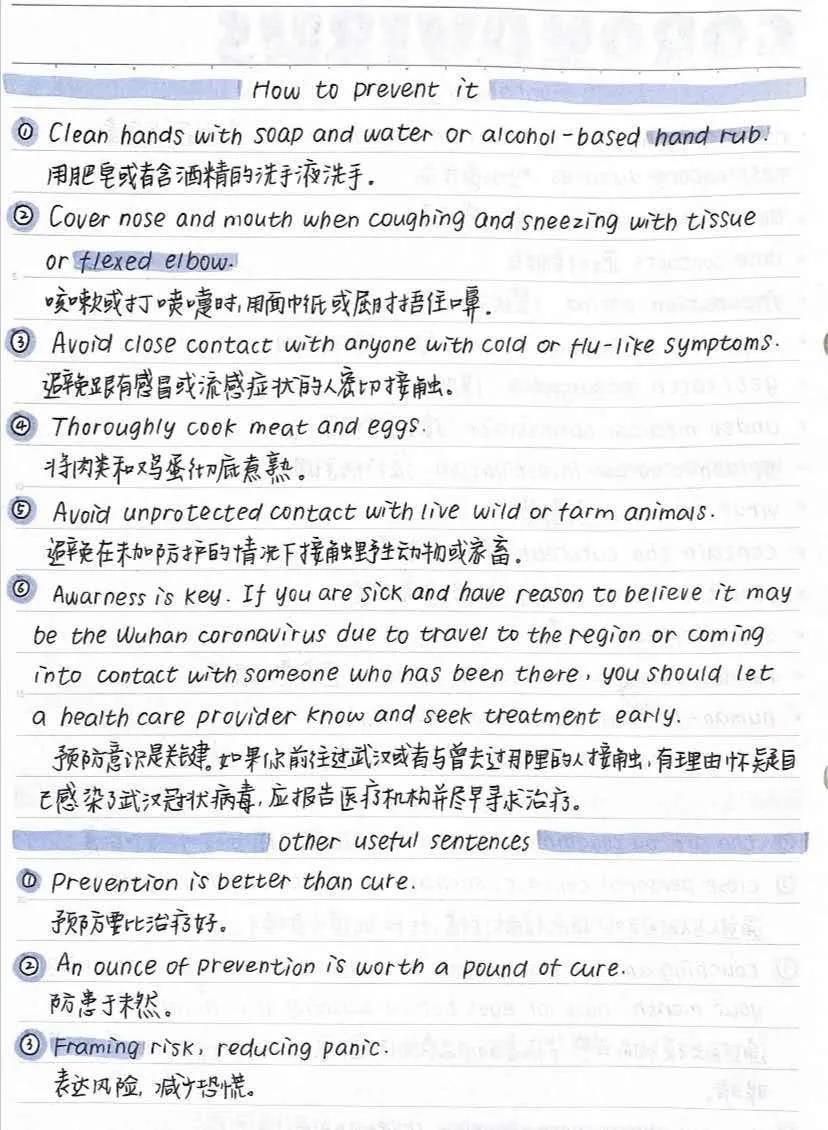 How to prevent it
① Clean hands with soap and water or alcohol-based hand rub.
用肥皂或者含酒精的洗手液洗手。
② Cover nose and mouth when coughing and sneezing with tissue
or flexed elbow.
咳嗽或打喷嚏时,用面巾纸或屈肘捂住口鼻.
③ Avoid close contact with anyone with cold or flu-like symptoms.
避免跟有感冒或流感症状的人密切接触。
④ Thoroughly cook meat and eggs.
将肉类和鸡蛋彻底煮熟。
⑤ Avoid unprotected contact with live wild or farm animals.
避免在未加防护的情况下接触野生动物或家畜。
⑥ Awarness is key. If you are sick and have reason to believe it may
be the Wuhan coronavirus due to travel to the region or coming
into contact with someone who has been there, you should let
a health care provider know and seek treatment early.
预防意识是关键。如果你前往过武汉或者与曾去过那里的人接触,有理由怀疑自
己感染了武汉冠状病毒,应报告医疗机构并尽早寻求治疗。
other useful sentences
① Prevention is better than cure.
预防要比治疗好。
② An ounce of prevention is worth a pound of cure.
防患于未然。
③ Framing risk, reducing panic.
表达风险,减少恐慌。